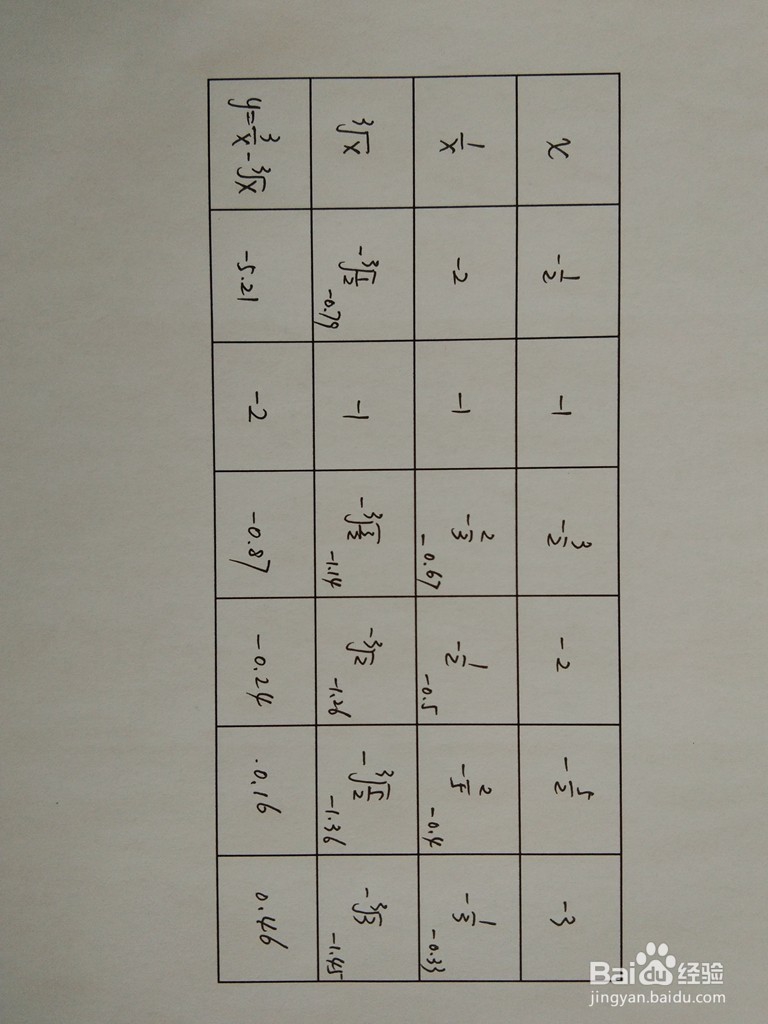 x -1/2 -1 -3/2 -2 -5/2 -3
1/x -2 -1 -2/3 -0.67 -1/2 -0.5 -2/5 -0.4 -1/3 -0.33
∛x -∛(1/2) -0.79 -1 -∛(3/2) -1.14 -∛2 -1.26 -∛(5/2) -1.36 -∛3 -1.45
y=3/x-∛x -5.21 -2 -0.87 -0.24 0.16 0.46
Bai du 经验
jingyan.baidu.com